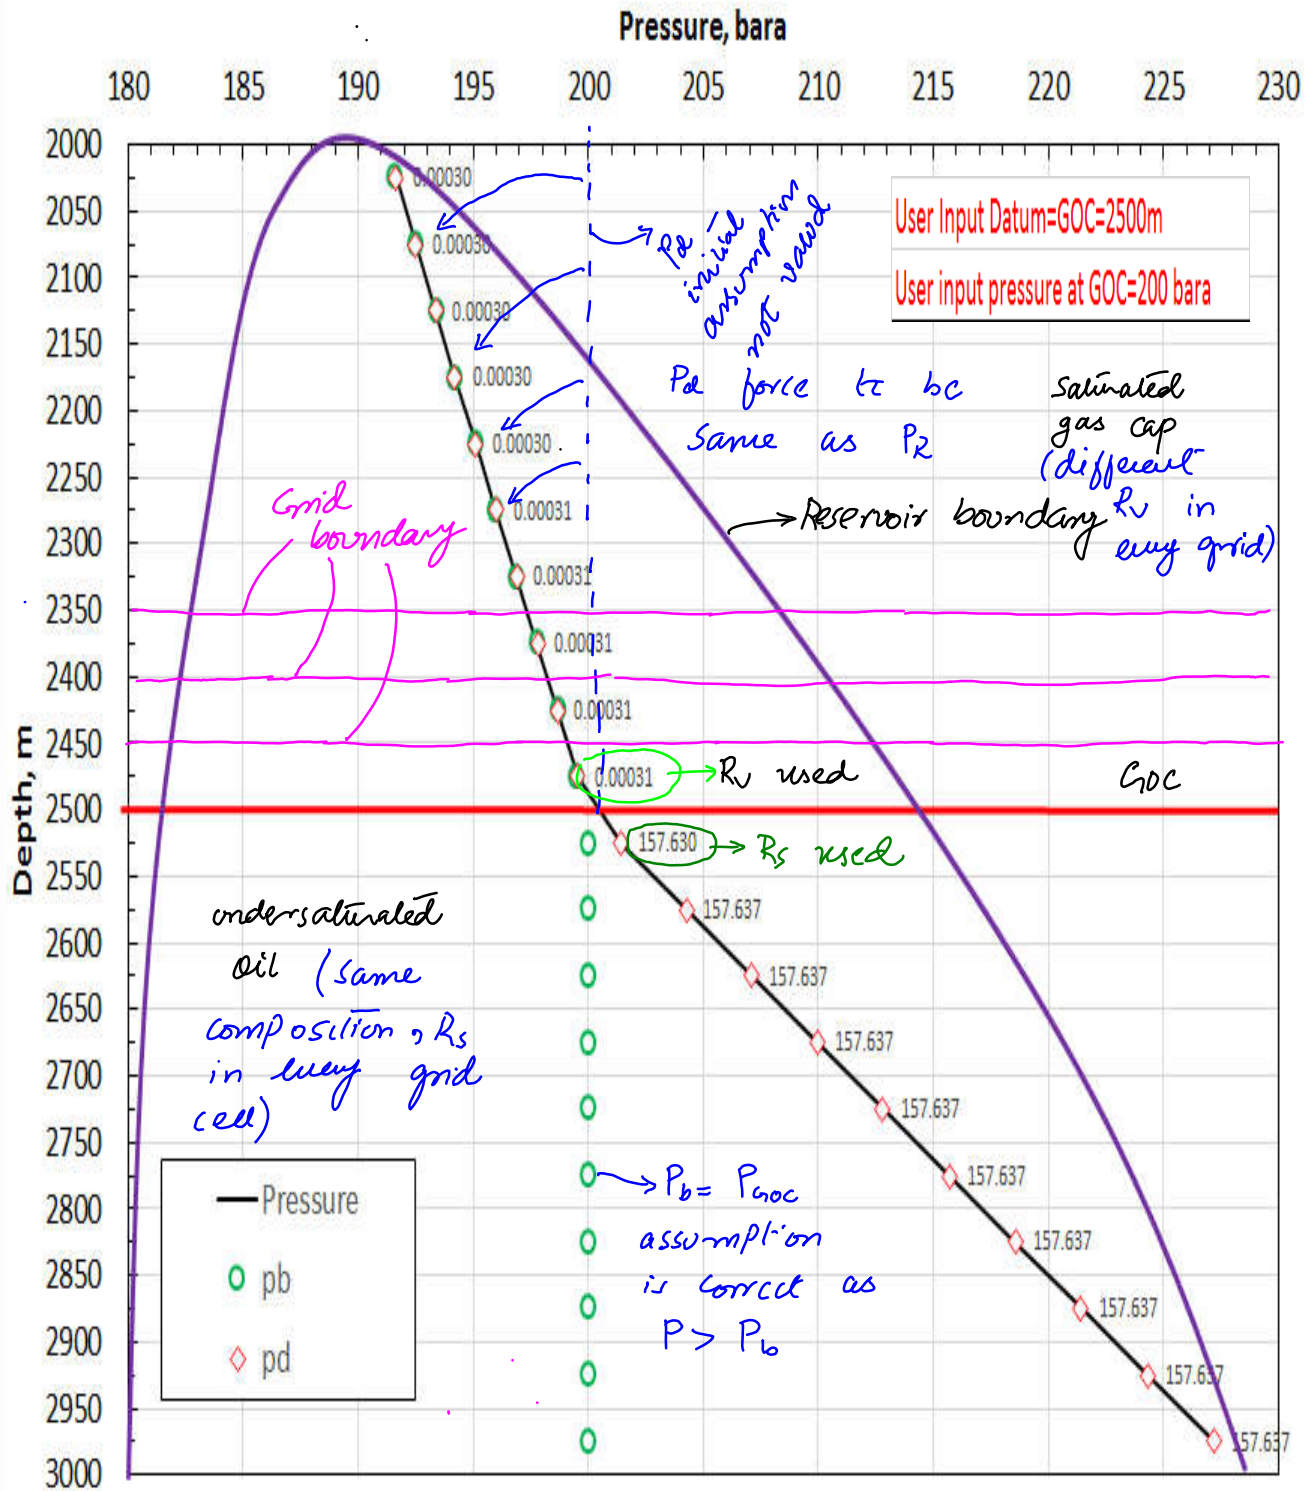 Pressure, bara
180 185 190 195 200 205 210 215 220 225 230
Depth, m
2000
2050
2100
2150
2200
2250
2300
2350
2400
2450
2500
2550
2600
2650
2700
2750
2800
2850
2900
2950
3000
0.00030
0.00030
0.00030
0.00030
0.00030
0.00031
0.00031
0.00031
0.00031
0.00031
157.630
157.637
157.637
157.637
157.637
157.637
157.637
157.637
157.637
157.637
User Input Datum=GOC=2500m
User input pressure at GOC=200 bara
Pd
initial
assumption
not valid
Pd force to be
same as PR
saturated
gas cap
(different
Rv in
every grid)
Reservoir boundary
Grid
boundary
Rv used
GOC
Rs used
undersaturated
oil (same
composition, Rs
in every grid
cell)
Pb = PGOC
assumption
is correct as
P > Pb
Pressure
pb
pd